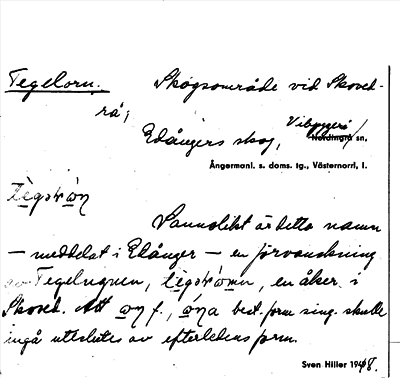 Tegelorn. Skogsområde vid Skoved-
rå;
Edångers skog, Vibyggerå sn.
Ångermanl. s. doms. tg., Västernorrl. l.
Sannolikt är detta namn
— meddelat i Edånger — en förvanskning
av Tegelugnen, en åker i
Skoved. Att f., best. form sing. skulle
ingå uteslutes av efterledens form.
Sven Hiller 1948.